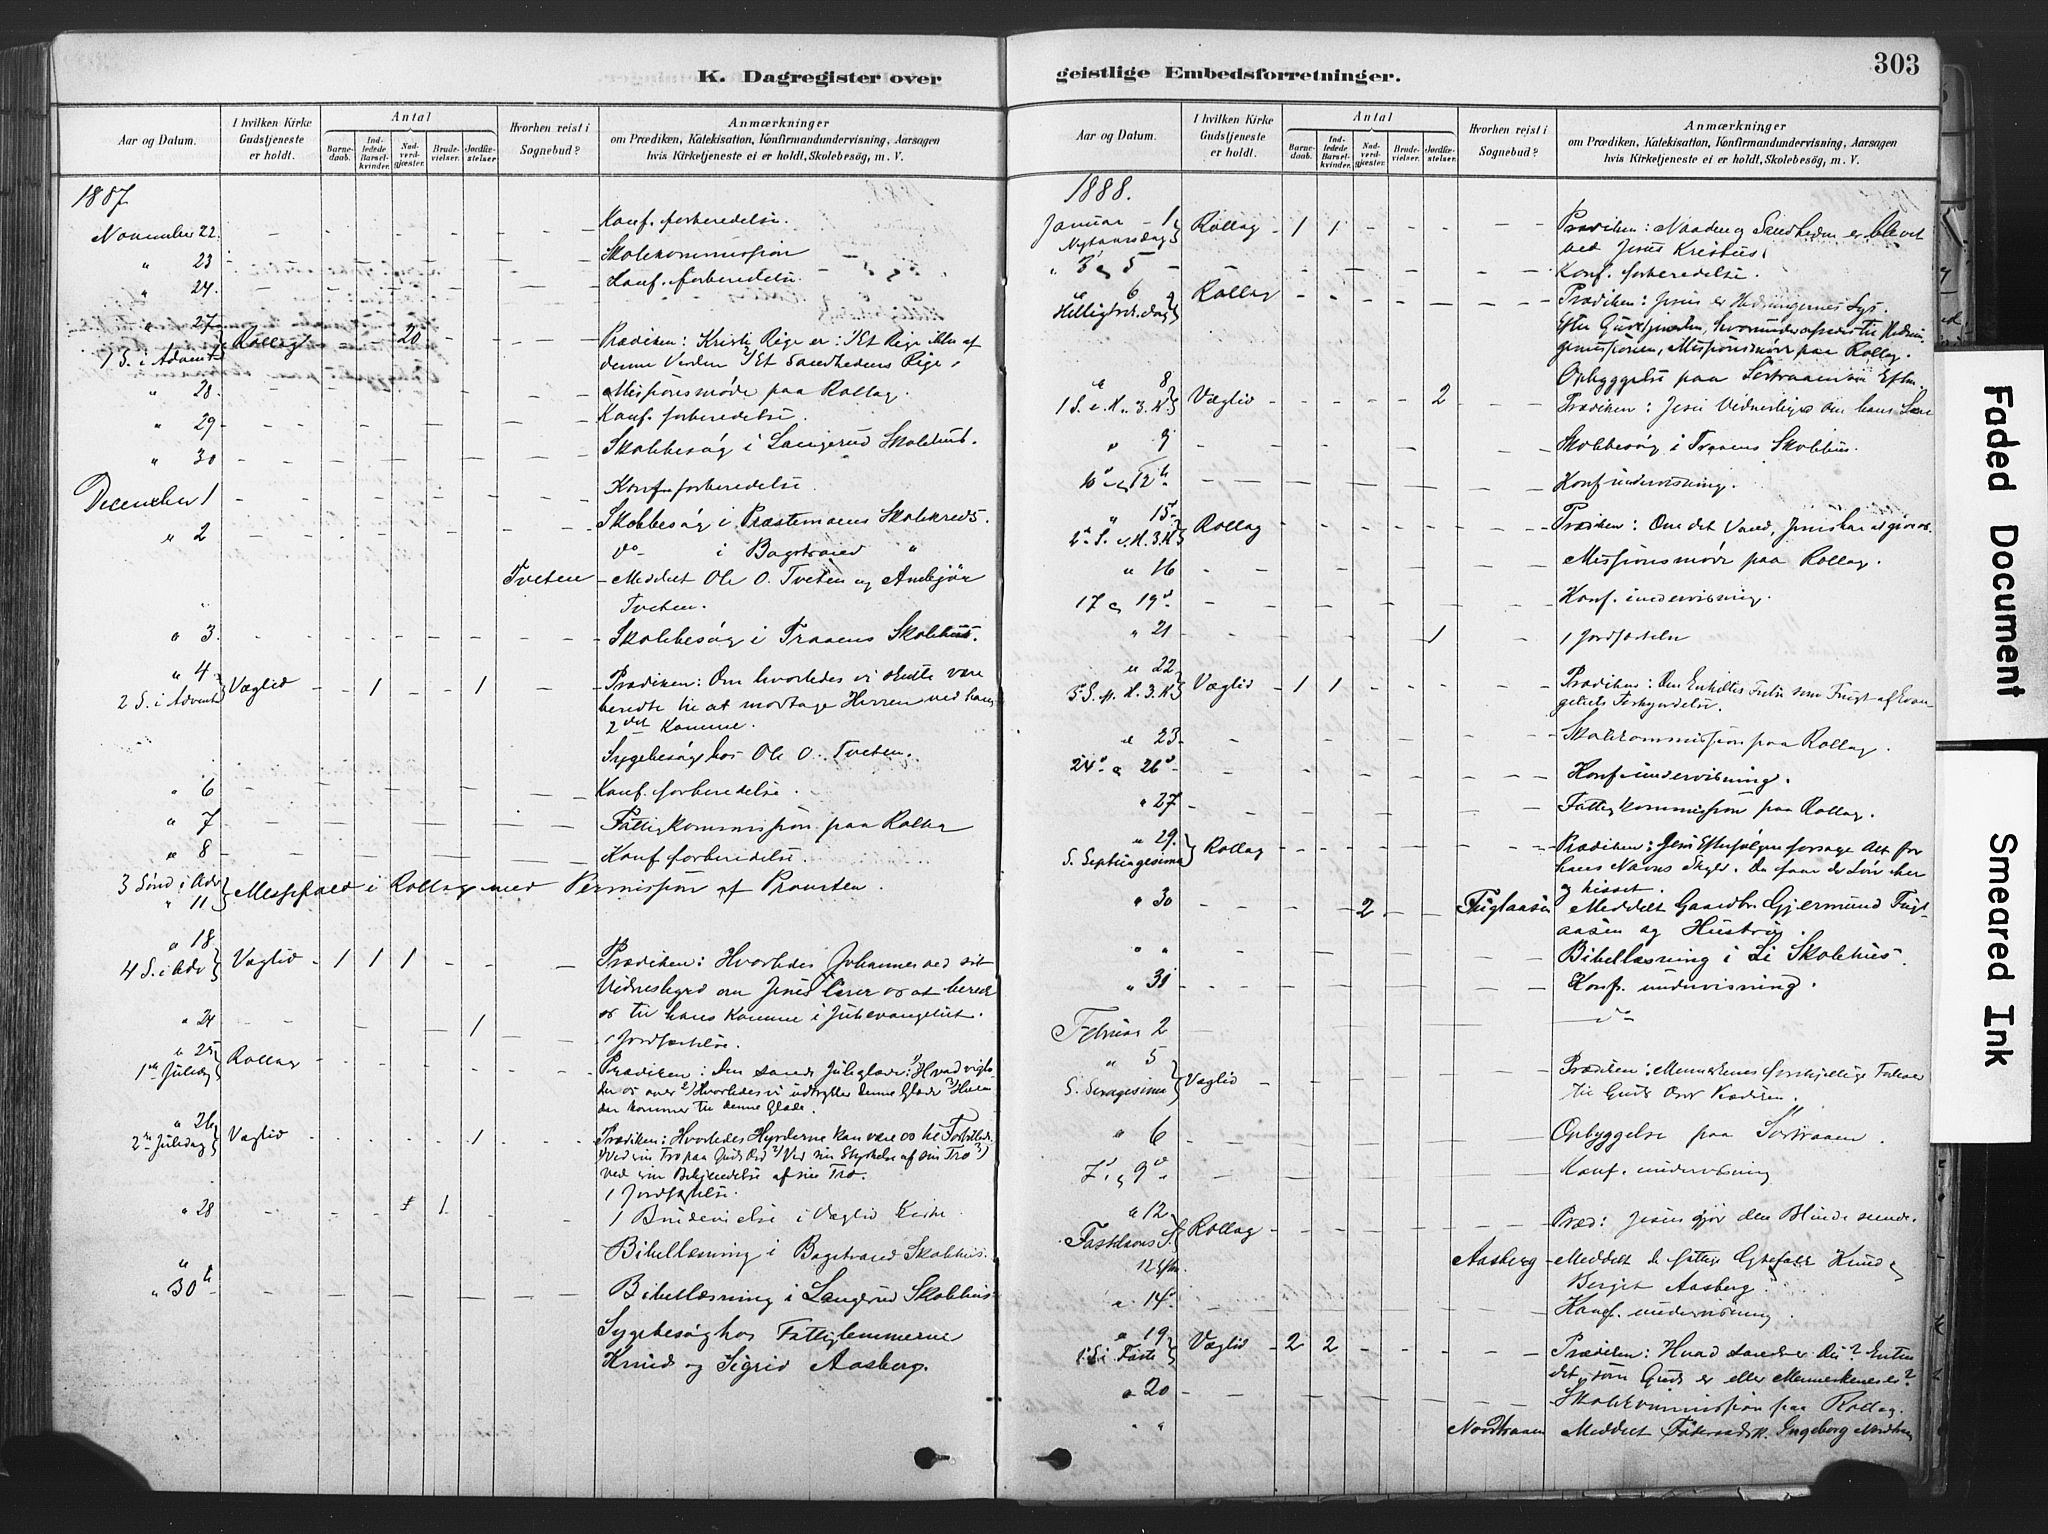 K. Dagregister over
Aar og Datum.
I hvilken Kirke Gudstjeneste er holdt.
Antal
Barnedaab.
Indledede Barselkvinder.
Nadverdgjæster.
Brudevielser.
Jordfæstelser
Hvorhen reist i Sognebud?
Anmærkninger
om Prædiken, Katekisation, Konfirmandundervisning, Aarsagen
hvis Kirketjeneste ei er holdt, Skolebesög, m. V.
1887
November 22. Konf. forberedelse.
" 23 Skolekommission
" 24. Konf. forberedelse
" 27
1 S. i Advent Rollag 20 Prædiken: Kristi Rige er: 1 Et Rige ikke af
denne Verden 2 Et Sandhedens Rige.
" 28. Missionsmøde paa Rollag.
" 29 Konf. forberedelse.
" 30 Skolebesøg i Langerud Skolehus.
December 1 Konf. forberedelse.
" 2 Skolebesøg i Præstemoens Skolekreds.
do i Bagstraand "
Tveten Meddelt Ole O. Tveten og
Tveten.
" 3 Skolebesøg i Traaens Skolehus.
" 4
2 S. i Advent Væglid 1 1 Prædiken: Om hvorledes vi skulle være
beredte til at modtage Herren ved hans
2det Komme.
Sygebesøg hos Ole O. Tveten.
" 6 Konf. forberedelse.
" 7 Fattigkommission paa Rollag
" 8 Konf. forberedelse.
3 Sønd i Adv
" 11 Messefald i Rollag med Permission af Provsten.
" 18
4 S. i Adv Væglid 1 1 1 Prædiken: Hvorledes Johannes ved sit
Vidnesbyrd om Jesus lærer os at berede
os til hans Komme i Juleevangeliet.
" 24 1 1 Jordfæstelse.
" 25
1ste Juledag Rollag Prædiken: Den sande Juleglæde: 1) Hvad vi glæ-
der os over 2) Hvorledes vi udtrykker denne Glæde 3) Hvem
der kommer til denne Glæde.
" 26
2den Juledag Væglid 1 Prædiken: Hvorledes Hyrderne kan være os til
1) Ved sin Tro paa Guds Ord 2) Ved sin Styrkelse af sin Tro 3)
ved sin Bekjendelse af sin Tro.
1 Jordfæstelse.
" 28 1 1 Brudevielse i Væglid Kirke
" Bibellæsning i Bagstrand Skolehus.
" 30te Bibellæsning i Langerud Skolehus
Sygebesøg hos Fattiglemmerne
Knud og Sigrid Aasberg.
geistlige Embedsforretninger.
303
Aar og Datum.
I hvilken Kirke Gudstjeneste er holdt.
Antal
Barnedaab.
Indledede Barselkvinder.
Nadverdgjæster.
Brudevielser.
Jordfæstelser.
Hvorhen reist i Sognebud?
Anmærkninger
om Prædiken, Katekisation, Konfirmandundervisning, Aarsagen
hvis Kirketjeneste ei er holdt, Skolebesög, m. V.
1888.
Januar 1
Nytaarsdag Rollag 1 1 Prædiken: Naaden og Sandheden er blevet
ved Jesus Kristus.
" 3 og 5 Konf. forberedelse.
" 6
Helligtr.k.dag Rollag Prædiken: Jesus er Hedningernes Lys.
Efter Gudstjenesten,
Missionsmøde paa Rollag.
Opbyggelse paa
" 8
1 S. e. H. 3. K Væglid 2 Prædiken: Jesu Vidnesbyrd om hans
" 9 Skolebesøg i Traaens Skolehus.
10 og 12te Konf undervisning.
" 15
2 S. e. H. 3. K Rollag Prædiken: Om det Vand, Jesus har at give os.
" 16 Missionsmøde paa Rollag.
17 og 19 Konf. undervisning.
" 21 1 1 Jordfæstelse
" 22
3 S. e. H. 3. K Væglid 1 1 Prædiken: Den Enkeltes som Frugt af Evan-
geliets Forkyndelse.
" 23 Skolekommission paa Rollag.
24 og 26 Konf. undervisning.
" 27 Fattigkommission paa Rollag.
" 29.
S. Septuagesima Rollag Prædiken: Jesu Efterfølgere forsage Alt for
hans Navns Skyld. De faar de Løn her
og hisset.
" 30 2 Fuglaasen Meddelt Gaardbr. Gjermund Fugl-
aasen og Hustru.
" " Bibellæsning i Li Skolehus.
" 31 Konf. undervisning.
Februar 2 do
" 5
S. Sexagesima Væglid Prædiken: Menneskenes forskjellige
til Guds Ord
" 6 Opbyggelse paa
7 og 9 Konf. undervisning
" 12
Fastelavns S. Rollag Præd: Jesus gjør den Blinde seende.
12 Aasberg Meddelt de fattige Ægtefolk Knud og
Berget Aasberg.
" 14 Konf. undervisning
" 19
1 S i Faste Væglid 2 2 Prædiken: Hvad sandser Du? Enten
det som Guds er eller Menneskenes er?
" 20 Skolekommission paa Rollag.
" " Nordtraaen Meddelt Føderaadsk. Ingeborg
Faded Document
Smeared Ink